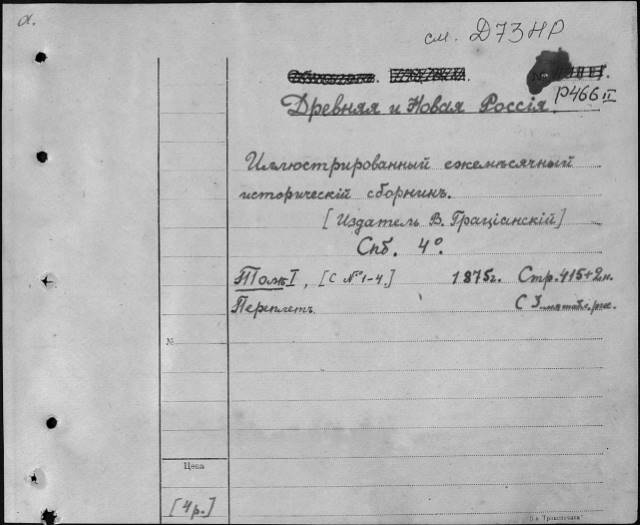 а.
см. Д73НР
Р466 II
Древняя и Новая Россія.
Иллюстрированный ежемѣсячный
историческій сборникъ.
[Издатель В. Граціанскій]
Спб. 4°.
Томъ I, [с №1-4.] 1875г. Стр. 415+2н.
Переплетъ. С 3
№
Цѣна
[4р.]